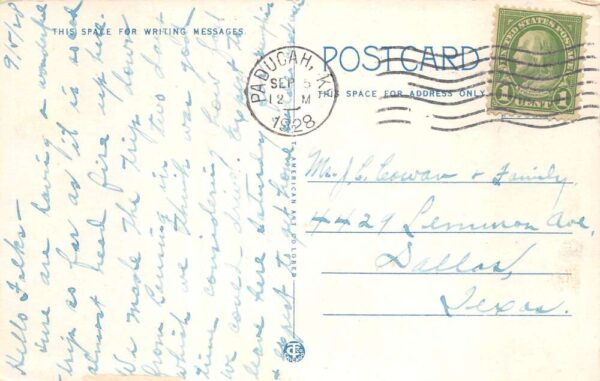 THIS SPACE FOR WRITING MESSAGES
9/5/28
Hello Folks—
Sure are having a wonderful
trip as far as it is so
almost head fire up here.
We made the trip down
from in two hot
which we think was good
time considering how far
we could drive. Expect to
leave here Saturday
expect to get home
POSTCARD
THIS SPACE FOR ADDRESS ONLY
PADUCAH, KY.
SEP 5
12 M
1928
UNITED STATES POSTAGE
1 CENT 1
Mr. J. L. Cowan & Family.
4429 Lemmon Ave,
Dallas,
Texas.
C.T. AMERICAN ART COLORED